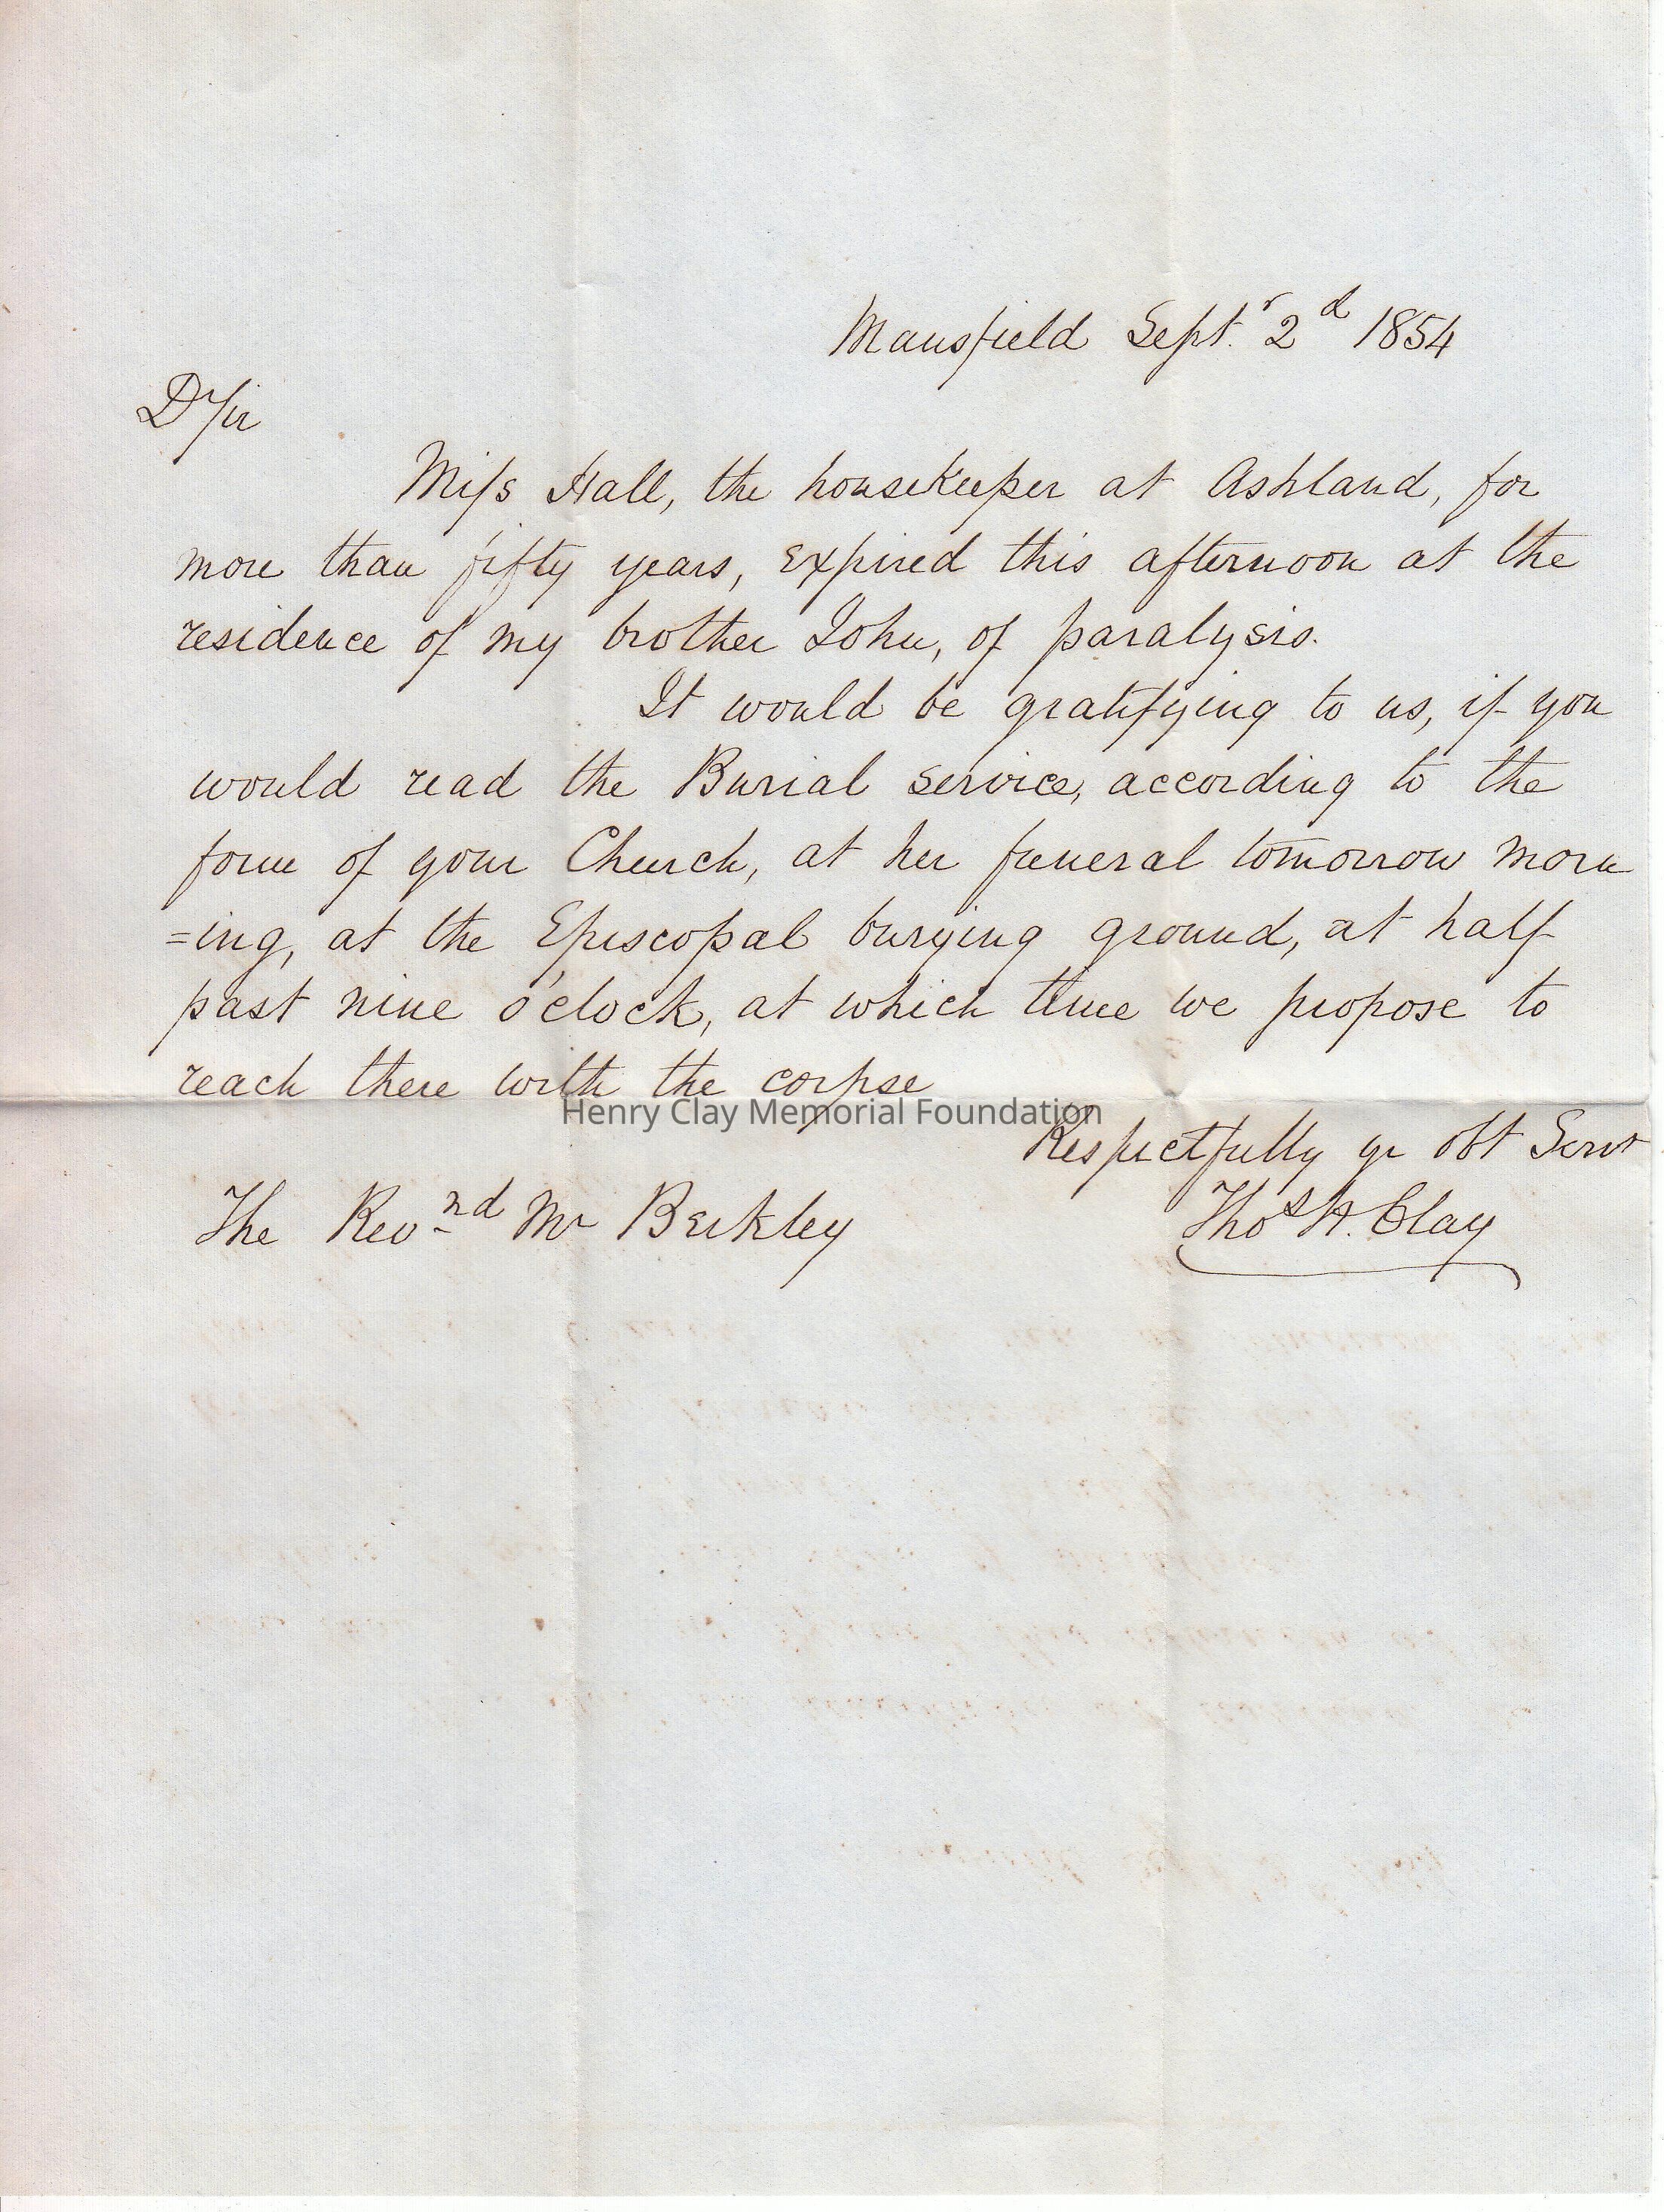 Mansfield Sept.r 2d 1854
D Sir
Miss Hall, the housekeeper at Ashland, for
more than fifty years, expired this afternoon at the
residence of my brother John, of paralysis.
It would be gratifying to us, if you
would read the Burial service, according to the
form of your Church, at her funeral tomorrow morn
=ing, at the Episcopal burying ground, at half
past nine o'clock, at which time we propose to
reach there with the corpse
Henry Clay Memorial Foundation
Respectfully yr obt Servt
The Revnd Mr Berkley
Thos H. Clay